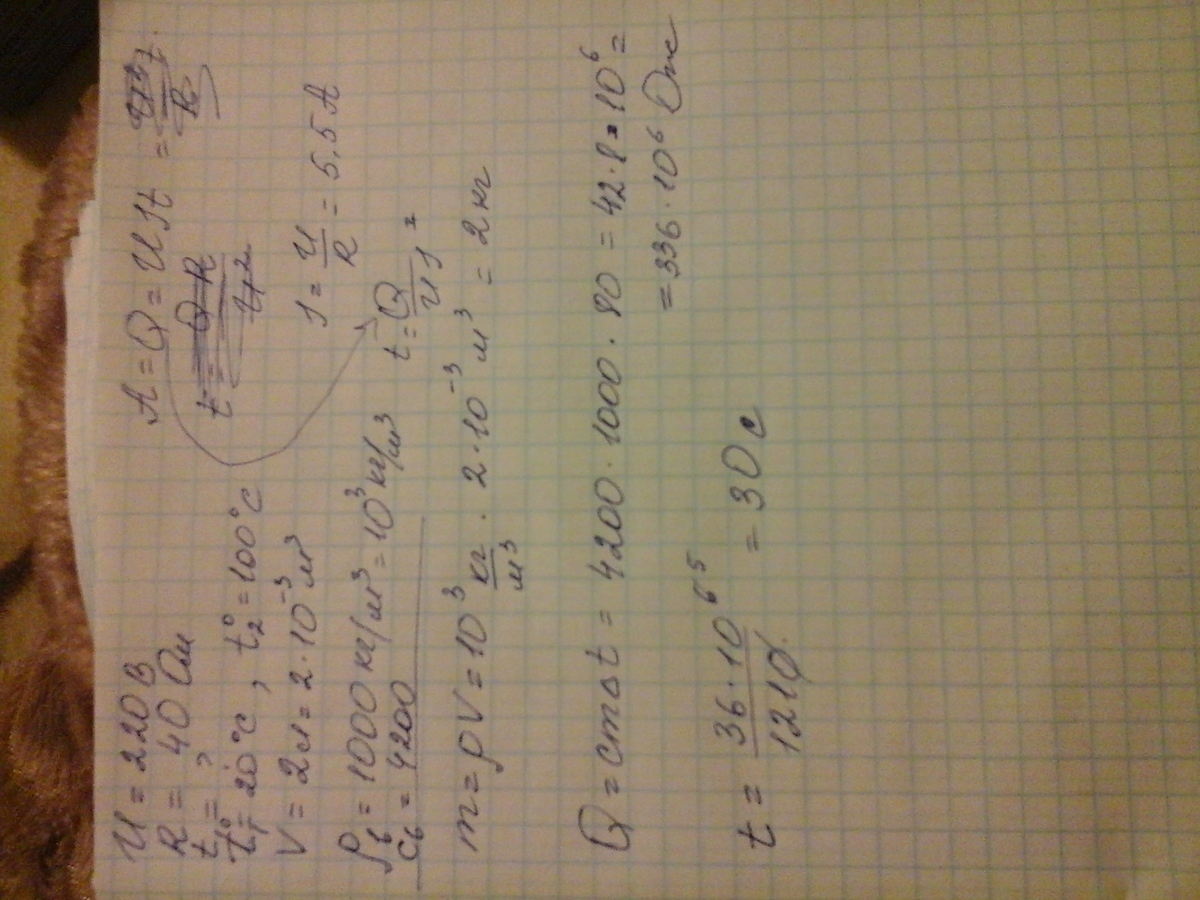 U = 220 В
R = 40 Ом
t = ,
t₁° = 20°C , t₂° = 100°C
V = 2л = 2 · 10⁻³ м³
ρв = 1000 кг/м³ = 10³ кг/м³
cв = 4200
A = Q = UIt =
t = QR/U²
I = U/R = 5,5 A
t = Q/UI =
m = ρV = 10³ кг/м³ · 2 · 10⁻³ м³ = 2 кг
Q = cmΔt = 4200 · 1000 · 80 = 42 · 8 · 10⁶ =
= 336 · 10⁶ Дж
t = 36 · 10⁶ ⁵/1210 = 30 с